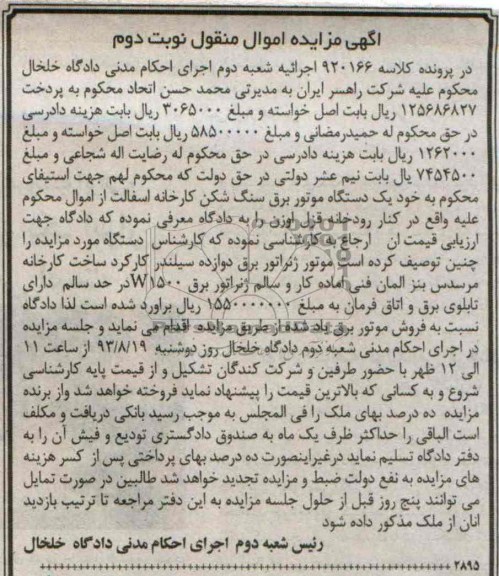 آگهی مزایده اموال منقول نوبت دوم
در پرونده کلاسه ۹۲۰۱۶۶ اجرائیه شعبه دوم اجرای احکام مدنی دادگاه خلخال
محکوم علیه شرکت راهسر ایران به مدیرتی محمد حسن اتحاد محکوم به پرداخت
۱۲۵۶۸۶۸۲۷ ریال بابت اصل خواسته و مبلغ ۳۰۶۵۰۰۰ ریال بابت هزینه دادرسی
در حق محکوم له حمیدرمضانی و مبلغ ۵۸۵۰۰۰۰۰ ریال بابت اصل خواسته و مبلغ
۱۲۶۲۰۰۰ ریال بابت هزینه دادرسی در حق محکوم له رضایت اله شجاعی و مبلغ
۷۴۵۴۵۰۰ یال بابت نیم عشر دولتی در حق دولت که محکوم لهم جهت استیفای
محکوم به خود یک دستگاه موتور برق سنگ شکن کارخانه اسفالت از اموال محکوم
علیه واقع در کنار رودخانه قزل اوزن را به دادگاه معرفی نموده که دادگاه جهت
ارزیابی قیمت ان ارجاع به کارشناسی نموده که کارشناس دستگاه مورد مزایده را
چنین توصیف کرده است موتور ژنراتور برق دوازده سیلندر کارکرد ساخت کارخانه
مرسدس بنز المان فنی آماده کار و سالم ژنراتور برق W۱۵۰۰ در حد سالم دارای
تابلوی برق و اتاق فرمان به مبلغ ۱۵۵۰۰۰۰۰۰۰ ریال براورد شده است لذا دادگاه
نسبت به فروش موتور برق یاد شده از طریق مزایده اقدام می نماید و جلسه مزایده
در اجرای احکام مدنی شعبه دوم دادگاه خلخال روز دوشنبه ۹۳/۸/۱۹ از ساعت ۱۱
الی ۱۲ ظهر با حضور طرفین و شرکت کندگان تشکیل و از قیمت پایه کارشناسی
شروع و به کسانی که بالاترین قیمت را پیشنهاد نماید فروخته خواهد شد واز برنده
مزایده ده درصد بهای ملک را فی المجلس به موجب رسید بانکی دریافت و مکلف
است الباقی را حداکثر ظرف یک ماه به صندوق دادگستری تودیع و فیش آن را به
دفتر دادگاه تسلیم نماید درغیراینصورت ده درصد بهای پرداختی پس از کسر هزینه
های مزایده به نفع دولت ضبط و مزایده تجدید خواهد شد طالبین در صورت تمایل
می توانند پنج روز قبل از حلول جلسه مزایده به این دفتر مراجعه تا ترتیب بازدید
انان از ملک مذکور داده شود
رئیس شعبه دوم اجرای احکام مدنی دادگاه خلخال
۲۸۹۵